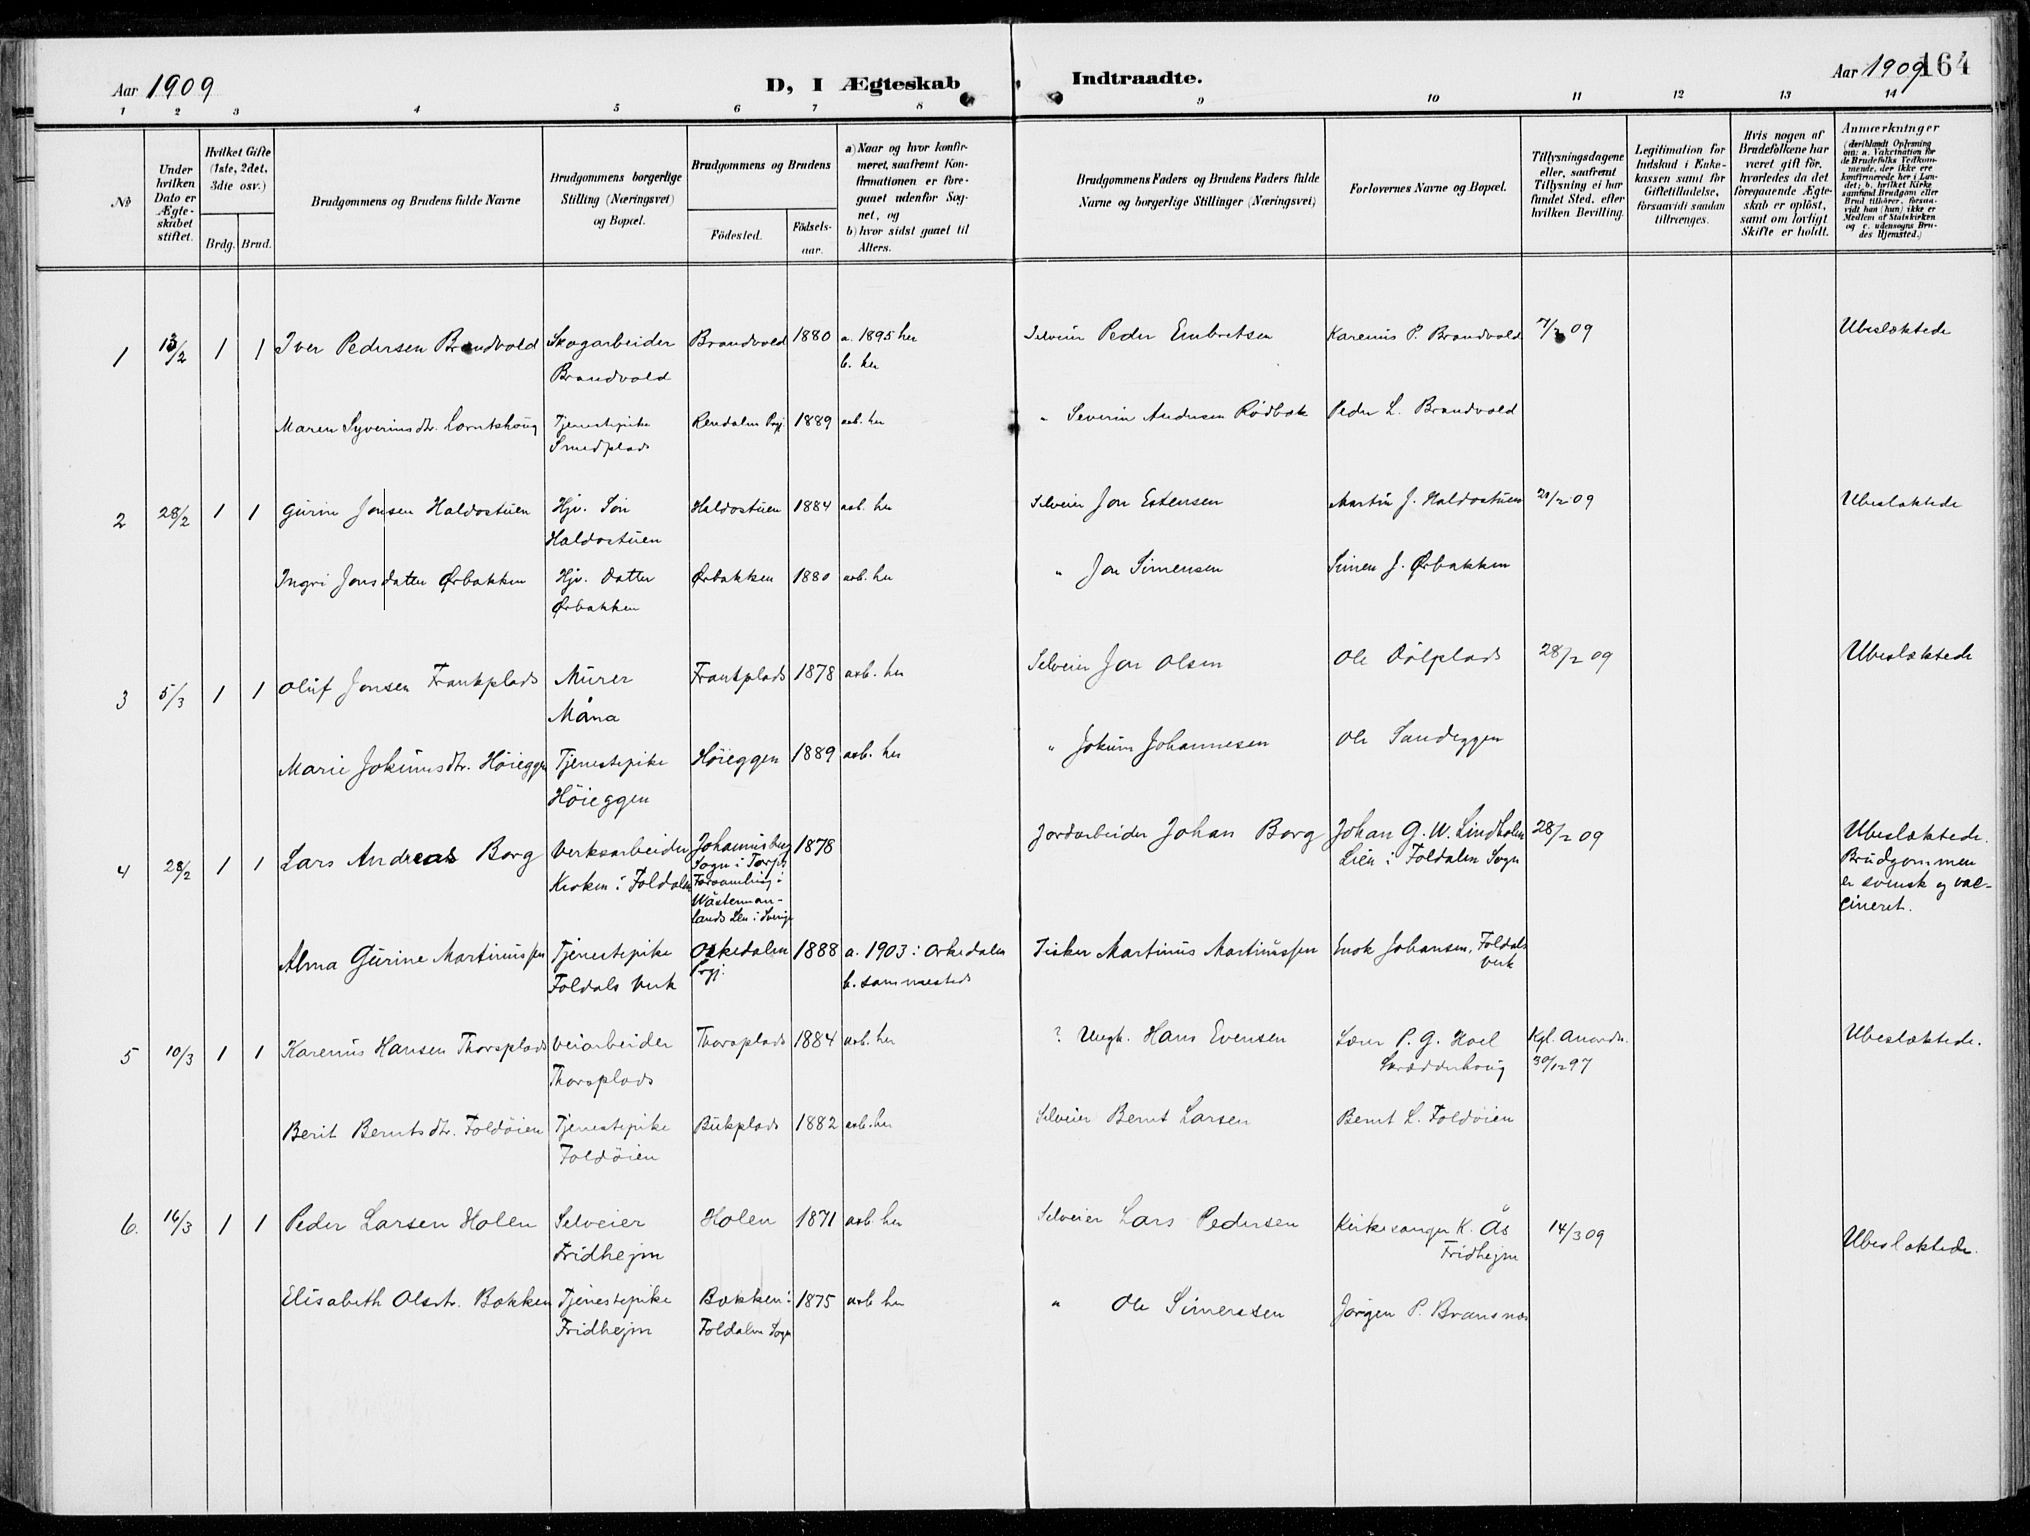 Aar 1909
D, I Ægteskab Indtraadte.
Aar 1909 164
1 2 3 4 5 6 7 8 9 10 11 12 13 14
№
Under hvilken Dato er Ægteskabet stiftet.
Hvilket Gifte (1ste, 2det, 3die osv.)
Brdg. Brud.
Brudgommens og Brudens fulde Navne
Brudgommens borgerlige Stilling (Næringsvei) og Bopæl.
Brudgommens og Brudens
Födested. Födselsaar.
a) Naar og hvor konfirmeret, saafremt Konfirmationen er foregaaet udenfor Sognet, og
b) hvor sidst gaaet til Alters.
Brudgommens Faders og Brudens Faders fulde Navne og borgerlige Stillinger (Næringsvei)
Forlovernes Navne og Bopæl.
Tillysningsdagene eller, saafremt Tillysning ei har fundet Sted, efter hvilken Bevilling.
Legitimation for Indskud i Enkekassen samt for Giftetilladelse, forsaavidt saadan tiltrænges.
Hvis nogen af Brudefolkene har været gift för, hvorledes da det foregaaende Ægteskab er oplöst, samt om lovligt Skifte er holdt.
Anmærkninger
(deriblandt Oplysning om: a. Vakcination for de Brudefolks Vedkommende, der ikke ere konfirmerede her i Landet; b. hvilket Kirkesamfund Brudgom eller Brud tilhörer, forsaavidt han (hun) ikke er Medlem af Statskirken og c. udensogns Brudes Hjemsted.)
1 13/2 1 1 Iver Pedersen Brandvold Skogarbeider Brandvold 1880 a. 1895 her Selveier Peder Embretsen Karenus P. Brandvold 7/2 09 Ubeslæktede
Brandvold b. her
Maren Syverinsdtr. Lorntshoug Tjenestepike Rendalen Pgj. 1889 aab. her " Severin Andresen Rödbæk Peder L. Brandvold
Smedplads
2 28/2 1 1 Gurin Jonsen Haldostuen Hjv. Sön Haldostuen 1884 aab. her Selveier Jon Estensen Martin J. Haldostuen 21/2 09 Ubeslæktede
Haldostuen
Ingri Jonsdatter Ørbakken Hjv. Datter Ørbakken 1880 aab. her " Jon Simensen Simen J. Ørbakken
Ørbakken
3 5/3 1 1 Oluf Jonsen Frankplads Murer Frankplads 1878 aab. her Selveier Jon Olsen Ole Dölplads 28/2 09 Ubeslæktede
Måna
Marie Jokumsdtr. Höieggen Tjenestepike Höieggen 1889 aab. her " Jokum Johannesen Ole Sandeggen
Höieggen
4 28/2 1 1 Lars Andreas Borg Verksarbeider Johannisberg 1878 Jordarbeider Johan Borg Johan G. W. Lindholm 28/2 09 Ubeslæktede.
Kroken i Foldalen Sogn i Lien i Foldalen Sogn Brudgommen
Wästermanlands Len i Sverige er svensk og vaccineret.
Alma Gurine Martinussen Tjenestepike Orkedalen 1888 a. 1903 i Orkedalen Fisker Martinus Martinussen Enok Johansen, Foldals
Foldals Verk Pgj. b. sammesteds Verk
5 10/3 1 1 Karenus Hansen Thorsplads Veiarbeider Thorsplads 1884 aab. her ? Ungk. Hans Evensen Lærer P. G. Hoel Kgl. Anordn. Ubeslæktede.
Thorsplads Skrædderhoug 30/12 97
Berit Berntsdtr. Foldöien Tjenestepike Bukplads 1882 aab. her Selveier Bernt Larsen Bernt L. Foldöien
Foldöien
6. 16/3 1 1 Peder Larsen Holen Selveier Holen 1871 aab. her Selveier Lars Pedersen Kirkesanger K. Ås 14/3 09 Ubeslæktede.
Fridhejm Fridhejm
Elisabeth Olsdtr. Bakken Tjenestepike Bakken i 1875 aab her " Ole Simensen Jörgen P. Bransnæs
Fridhejm Foldalen Sogn